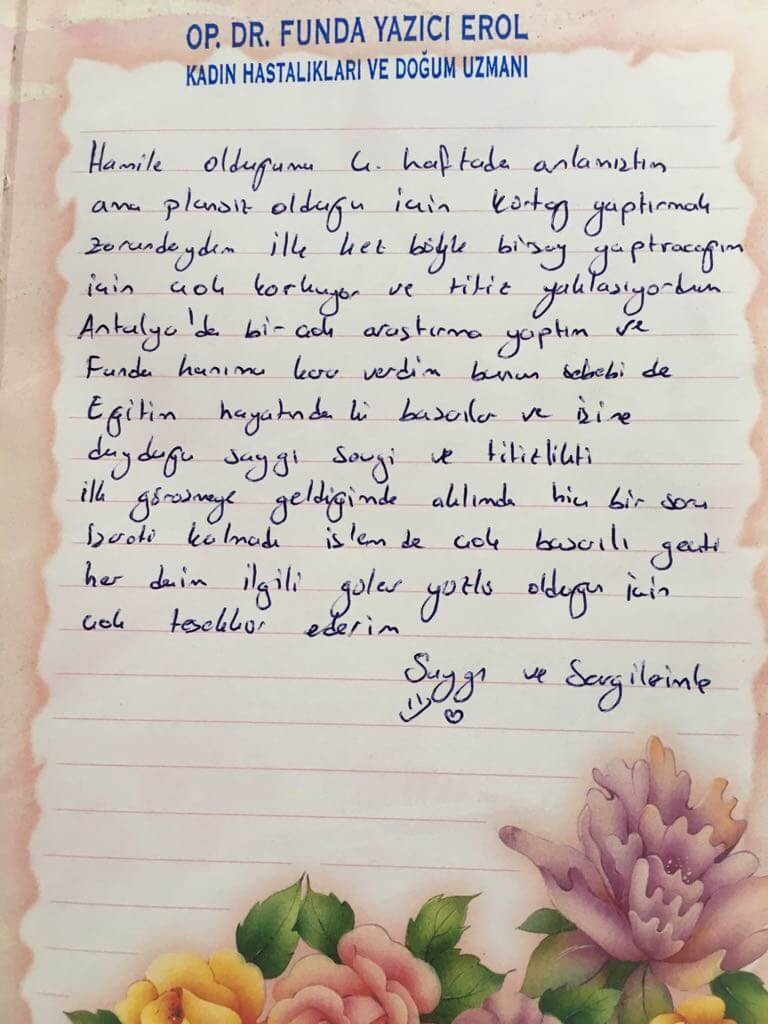 OP. DR. FUNDA YAZICI EROL
KADIN HASTALIKLARI VE DOĞUM UZMANI
Hamile olduğumu 4. haftada anlamıştım
ama plansız olduğu için kürtaj yaptırmak
zorundaydım ilk kez böyle bişey yaptıracağım
için çok korkuyor ve titiz yaklaşıyordum
Antalya'da bir çok araştırma yaptım ve
Funda hanıma karar verdim bunun sebebi de
Eğitim hayatında ki başarılar ve işine
duyduğu saygı sevgi ve titizlikti
ilk görüşmeye geldiğimde aklımda hiç bir soru
işareti kalmadı işlem de çok başarılı geçti
her daim ilgili güler yüzlü olduğu için
çok teşekkür ederim
Saygı ve Sevgilerimle